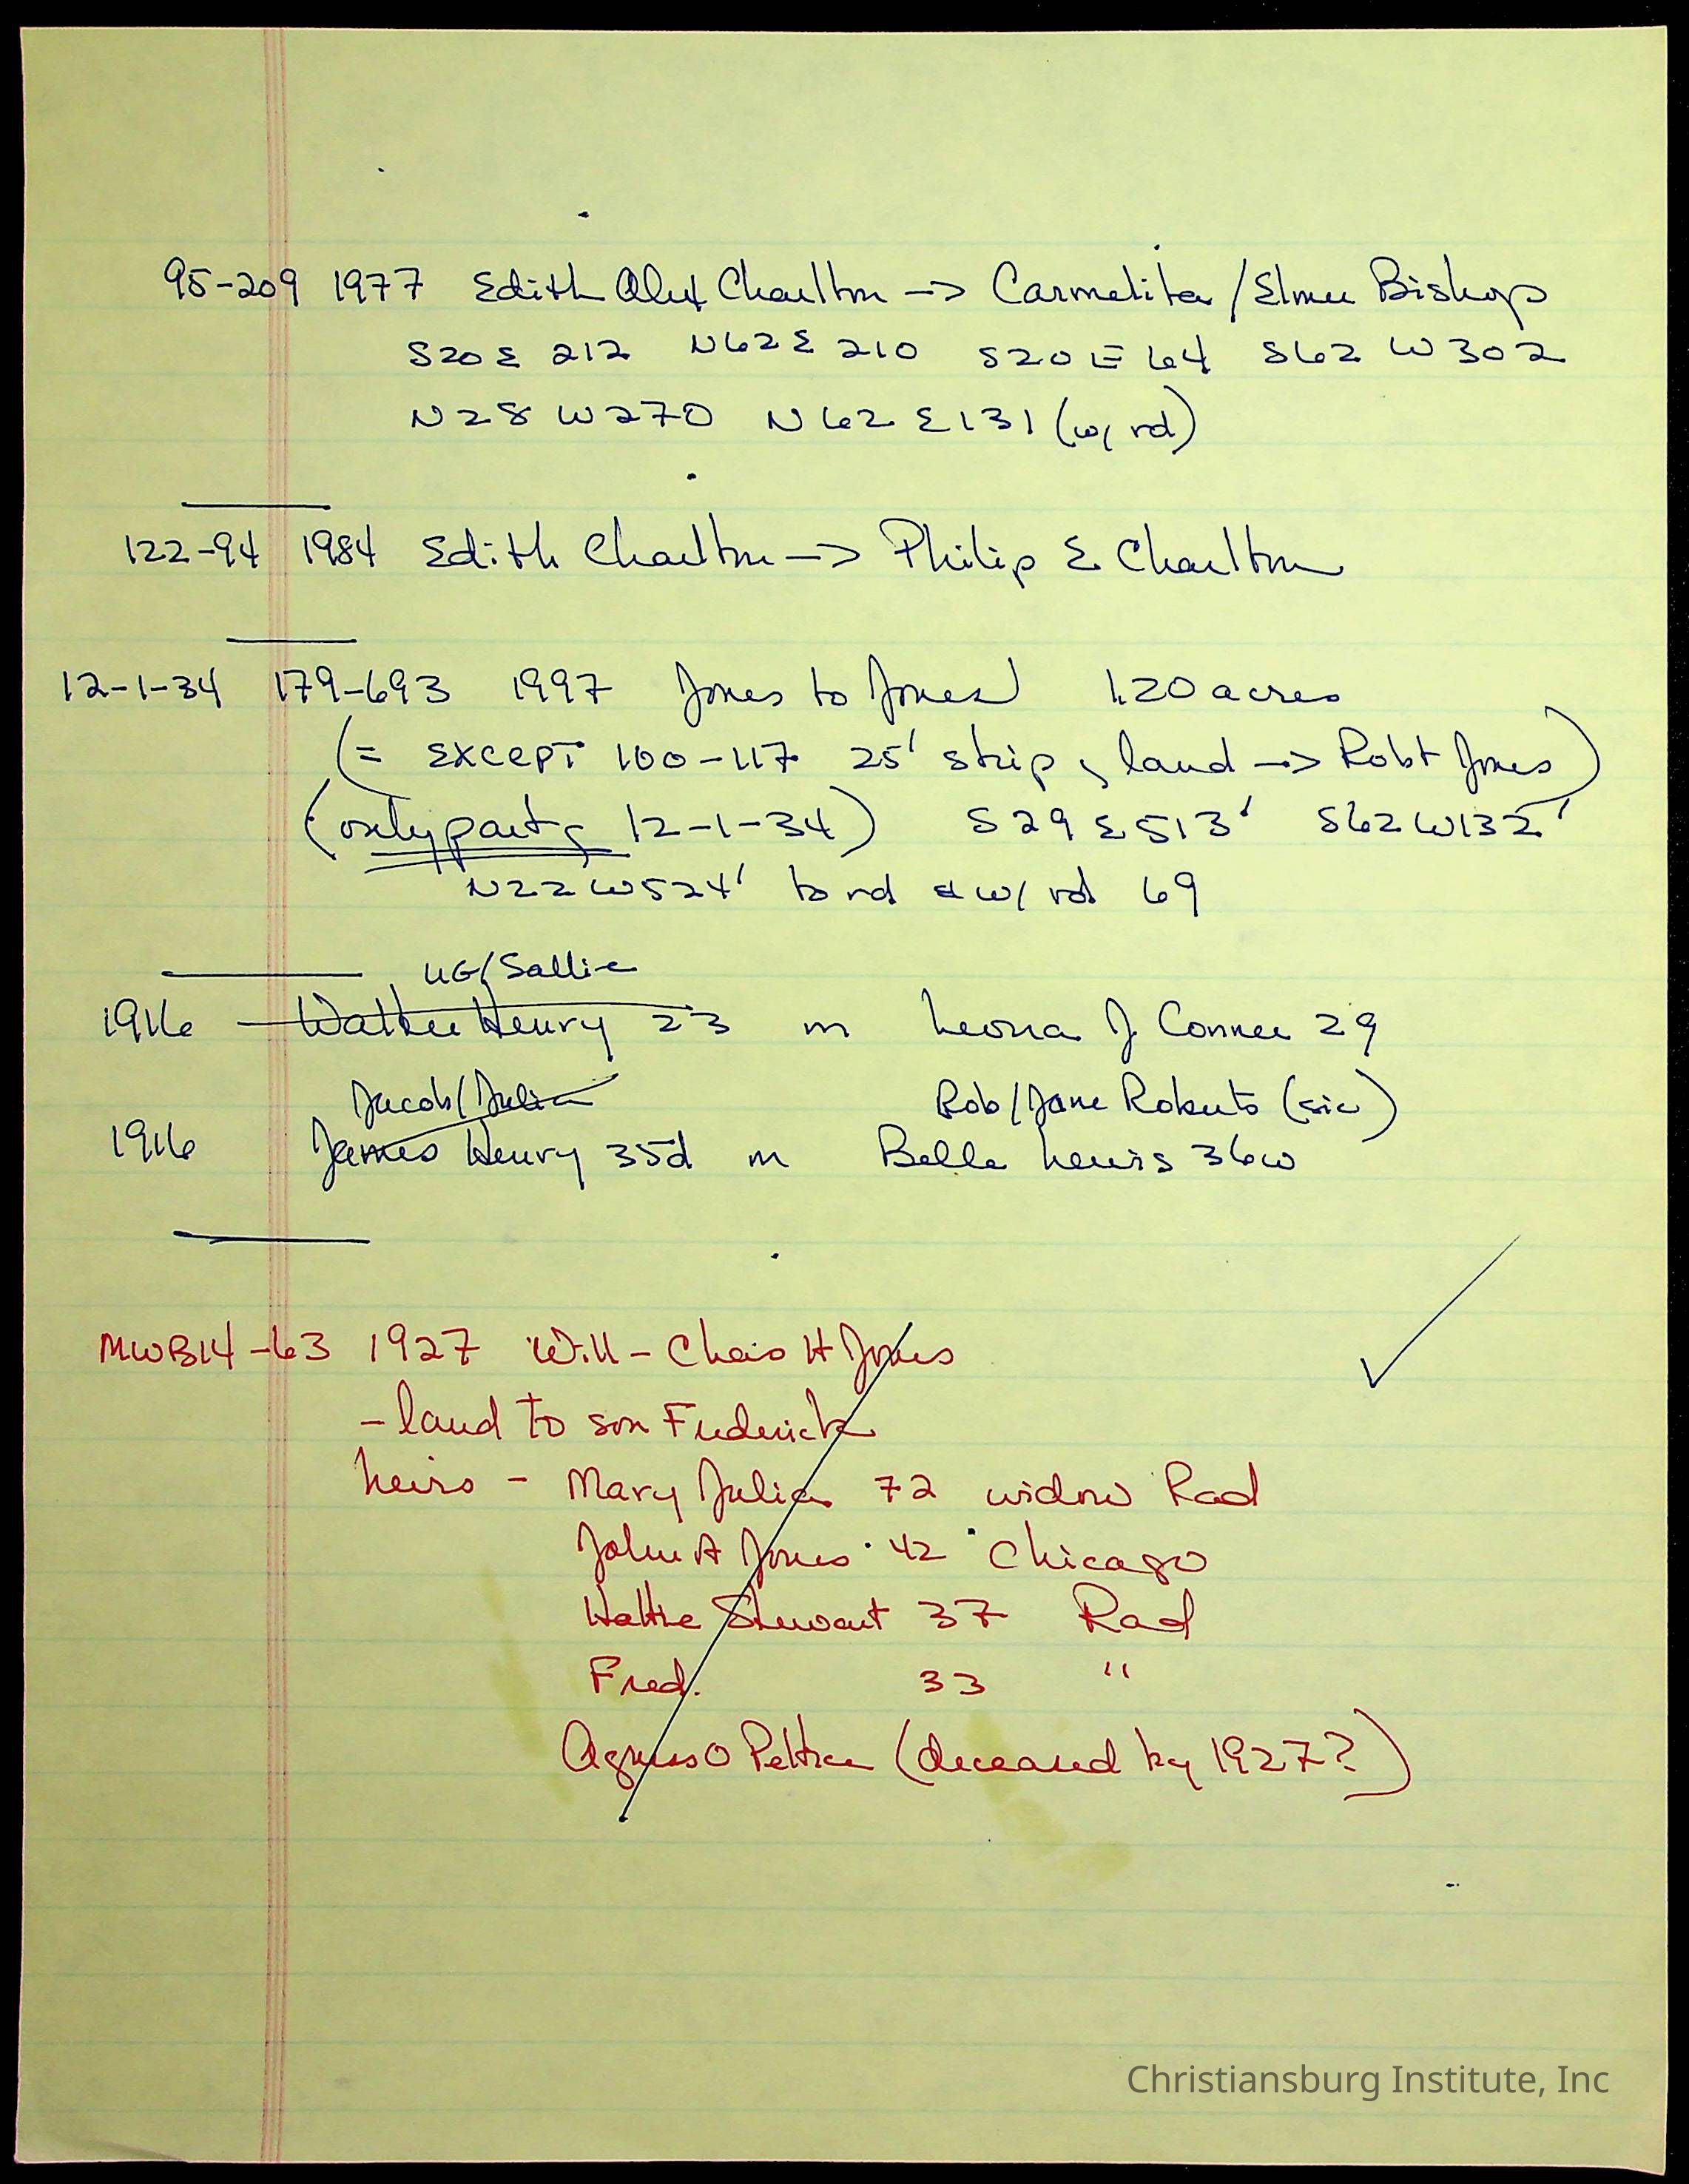 95-209 1977 Edith Alex Charlton -> Carmelita/Elmer Bishop
S20E 212 N62E 210 S20E 64 S62 W302
N28 W270 N62 E131 (w/ rd)
122-94 1984 Edith Charlton -> Philip E Charlton
12-1-34 179-693 1997 Jones to Jones 1.20 acres
(= EXCEPT 100-117 25' strip land -> Robt Jones)
(only part 12-1-34) S29E513' S62W132'
N22W524' to rd & w/ rd 69
UG/Sallie
1916 Walter Henry 23 m Leona J Conner 29
Jacob/Julia Rob/Jane Roberts (sic)
1916 James Henry 35d m Belle Lewis 36w
MWB14-63 1927 Will - Chas H Jones
- land to son Frederick
heirs - Mary Julia 72 widow Rad
John A Jones 42 Chicago
Hattie Stewart 37 Rad
Fred. 33 "
Agnes O (deceased by 1927?)
Christiansburg Institute, Inc